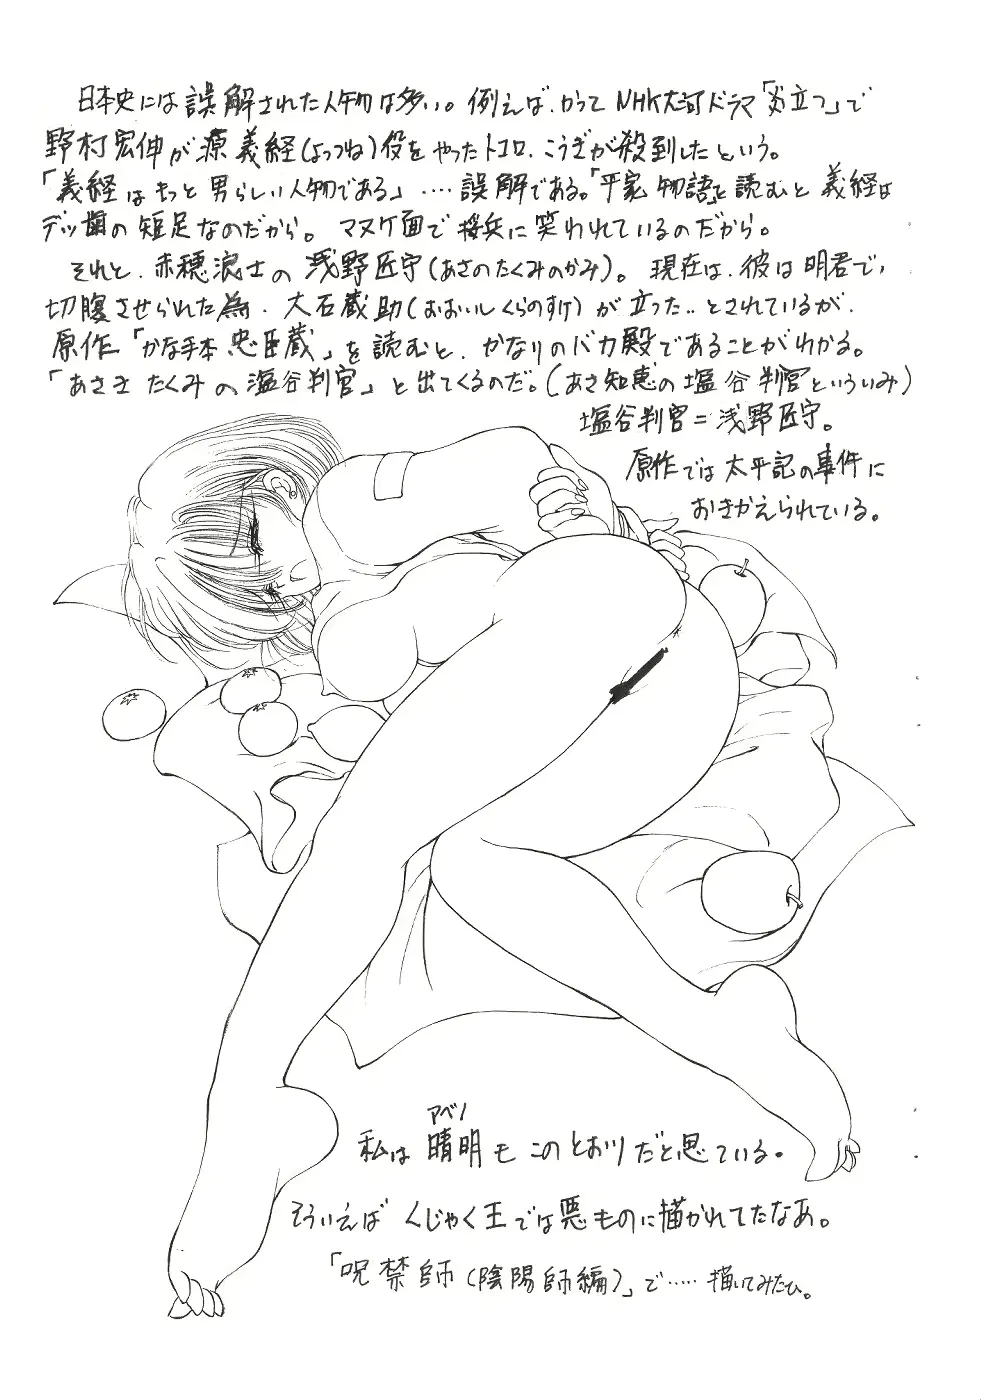 日本史には誤解された人物は多い。例えば、かつてNHK大河ドラマ「炎立つ」で
野村宏伸が源義経(よつつね)役をやったトコロ、こうぎが殺到したという。
「義経はもっと男らしい人物である」‥‥誤解である。「平家物語」を読むと義経は
デッ歯の短足なのだから。マヌケ面で 兵に笑われているのだから。
それと、赤穂浪士の浅野匠守(あさのたくみのかみ)。現在は、彼は明君で、
切腹させられた為、大石蔵助(おおいしくらのすけ)が立った‥とされているが、
原作「かな手本忠臣蔵」を読むと、かなりのバカ殿であることがわかる。
「あさき たくみの塩谷判官」と出てくるのだ。(あさ知恵の塩谷判官といういみ)
塩谷判官=浅野匠守。
原作では太平記の事件に
おきかえられている。
アベノ
私は 晴明も このとおりだと思っている。
そういえば くじゃく王では悪ものに描かれてたなあ。
「呪禁師(陰陽師編)」で‥‥‥描いてみたひ。